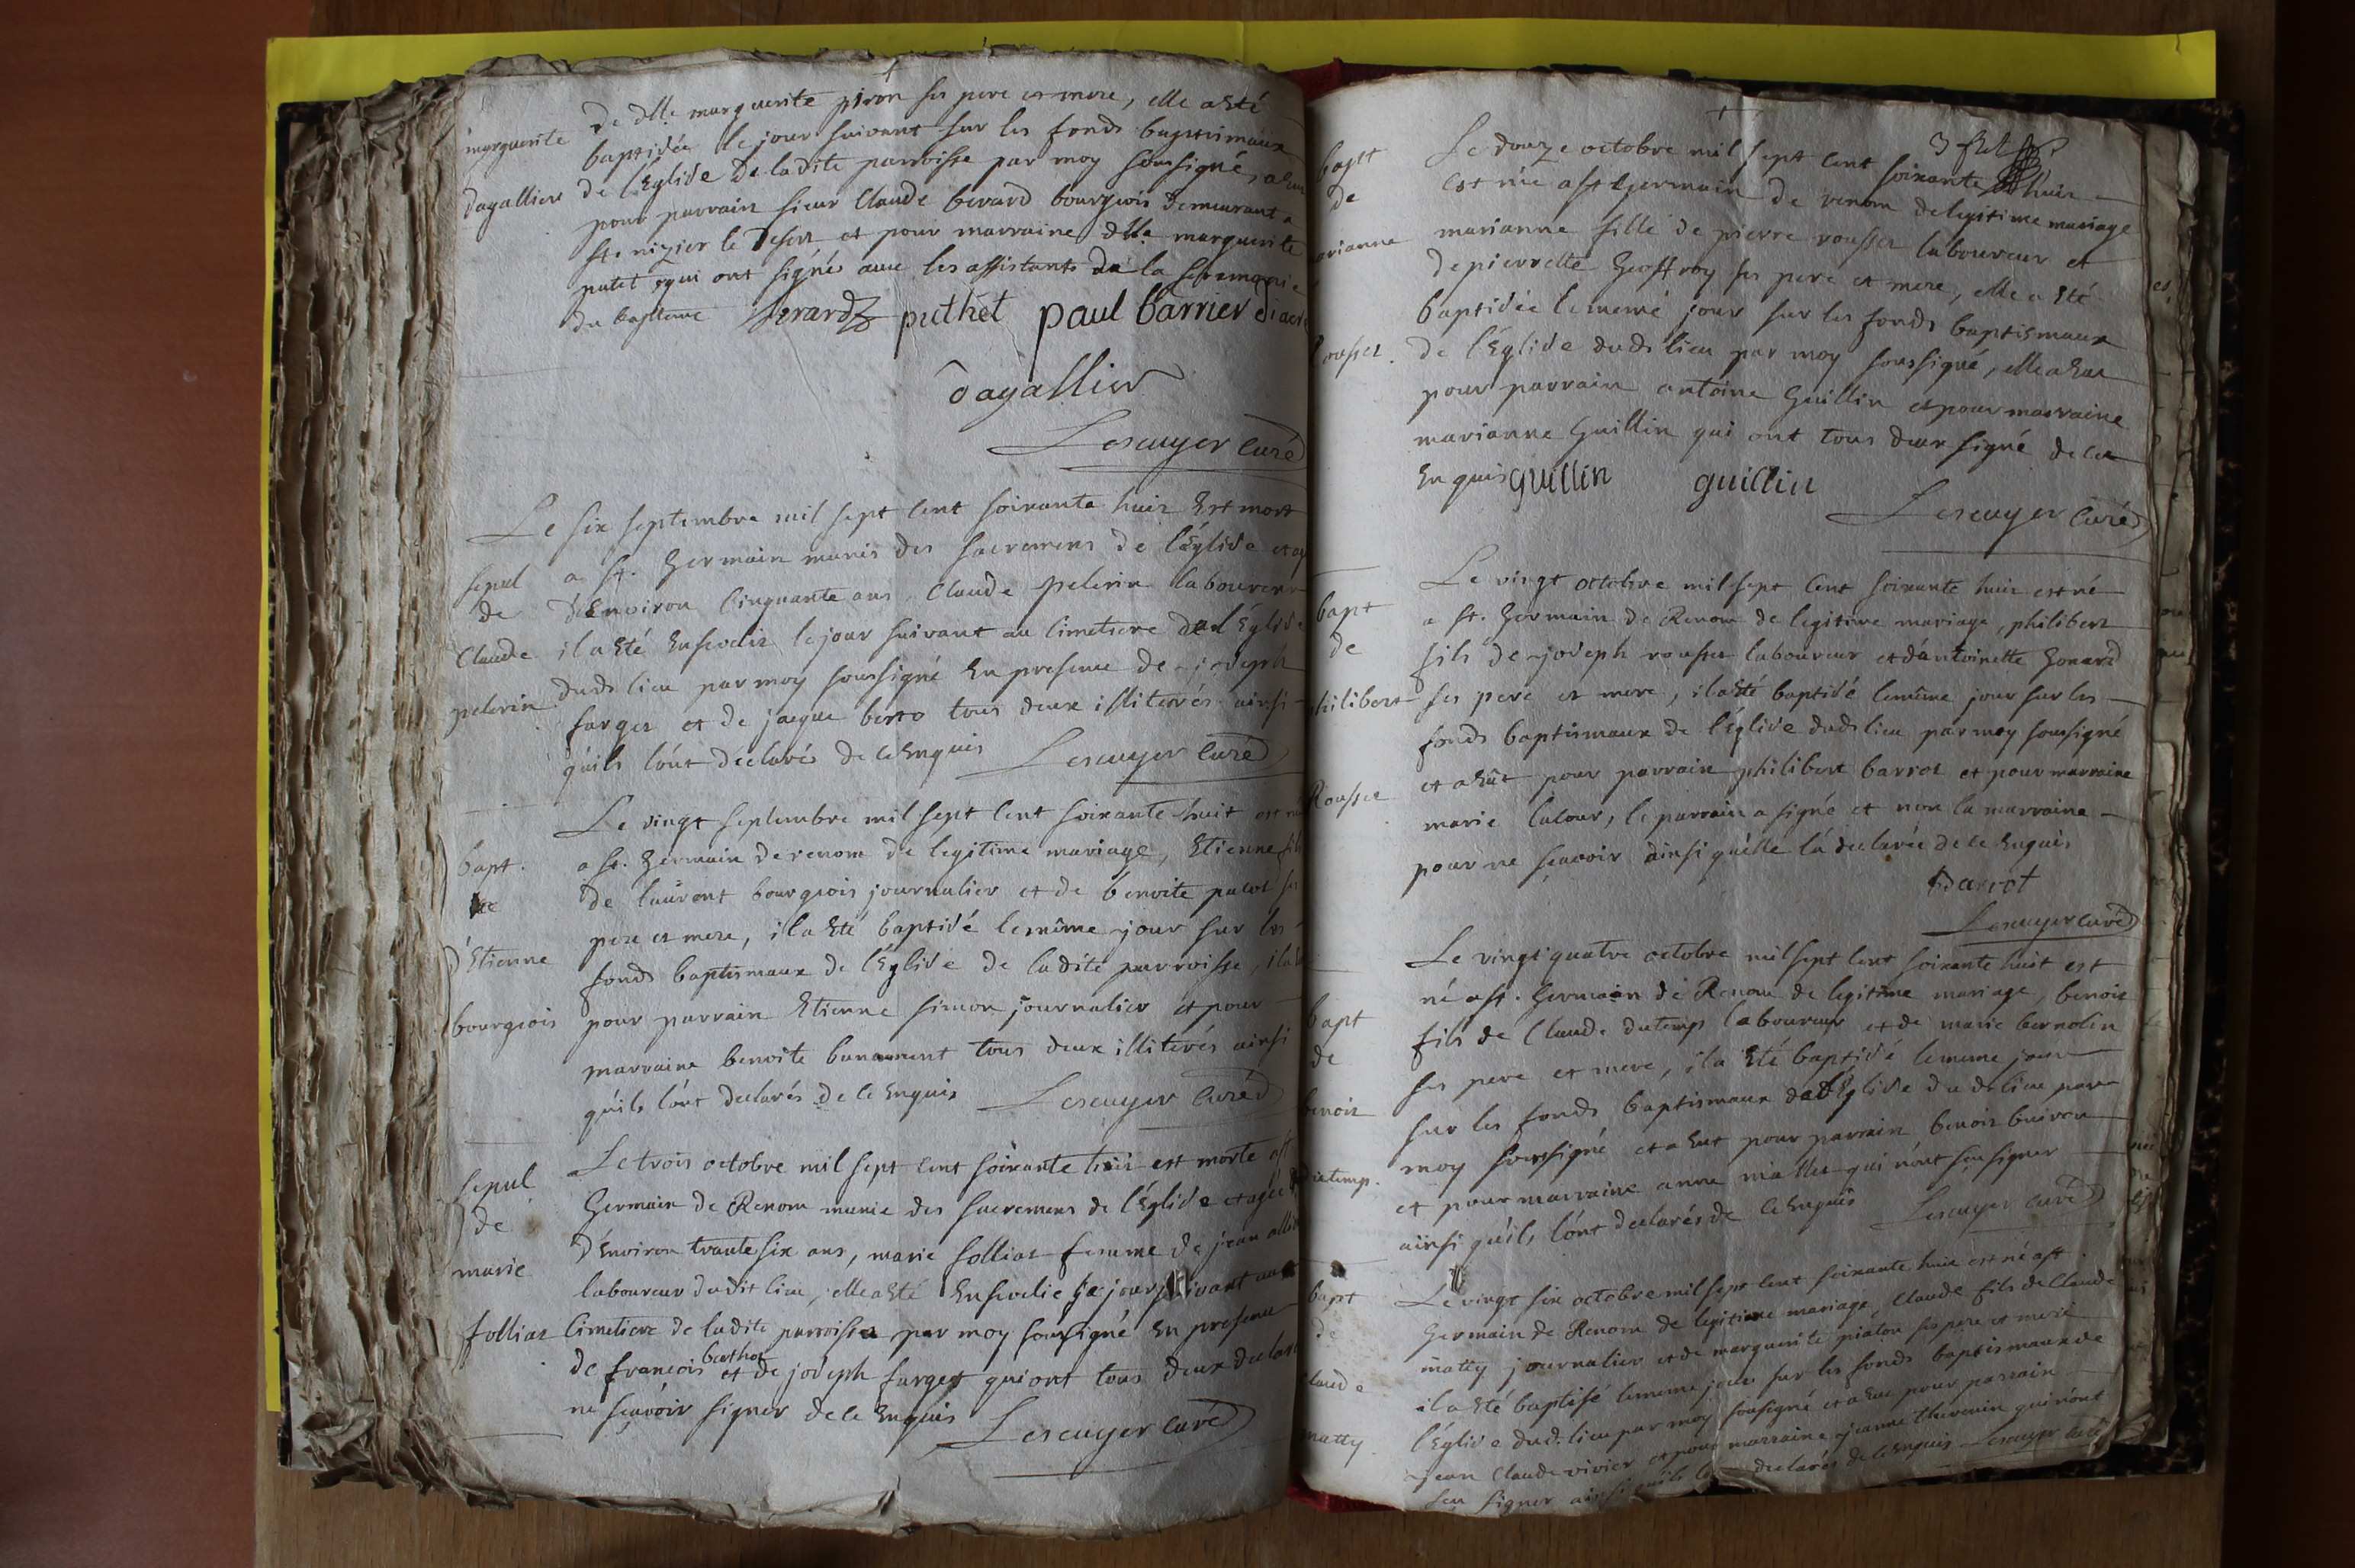 de dlle marguerite piron ses pere et mere, elle a Eté
marguerite baptisée le jour suivant sur les fonds baptismaux
dagallier de l'Eglise de ladite parroisse par moy soussigné, a Eu
pour parrain sieur Claude berard bourgeois demeurant a
st. nizier le desert et pour marraine dlle marguerite
putet qui ont signés avec les assistants de la ceremonie
du bapteme Berard puthet paul barrier diacre
dagallier
Lescuyer Curé
Le six septembre mil sept cent soixante huit Est mort
sepul a st. Germain munis des sacremens de l'Eglise et agé
de d'Environ Cinquante ans, Claude pelerin laboureur
Claude il a Eté Enseveli le jour suivant au Cimetiere de l'Eglise
pelerin dudt lieu par moy soussigné En presence de joseph
farget et de jacque berto tous deux illiterés ainsi
qu'ils l'ont declarés de ce Enquis Lescuyer Curé
Le vingt septembre mil sept cent soixante huit est né
bapt. a st. Germain de renom de legitime mariage, Etienne fils
de de laurent bourgeois journalier et de benoite pacot ses
pere et mere, il a Eté baptisé le même jour sur les
d'Etienne fonds baptismaux de l'Eglise de ladite parroisse, il a
bourgeois pour parrain Etienne simon journalier et pour
marraine benoite banament tous deux illiterés ainsi
qu'ils l'ont declarés de ce Enquis Lescuyer Curé
Le trois octobre mil sept cent soixante huit est morte a st
sepul Germain de Renom munie des sacremens de l'Eglise et agée
de d'Environ trante six ans, marie folliat femme de jean
marie laboureur dudit lieu, elle a Eté Ensevelie le jour suivant au
folliat Cimetiere de ladite parroisse par moy soussigné En presence
de francois berthot et de joseph farget qui ont tous deux declaré
ne sçavoir signer de ce Enquis Lescuyer curé
Le douze octobre mil sept cent soixante huit
bapt est née a st Germain de renom de legitime mariage
de marianne fille de pierre rousset laboureur et
marianne de pierrette Geoffroy ses pere et mere, elle a Eté
baptisée le meme jour sur les fonds baptismaux
rousset. de l'Eglise dudt lieu par moy soussigné, elle a Eue
pour parrain antoine Guillin et pour marraine
marianne Guillin qui ont tous deux signé de ce
Enquis guillin guillin
Lescuyer Curé
Le vingt octobre mil sept cent soixante huit est né
bapt a st. Germain de Renom de legitime mariage, philibert
de fils de joseph rousset laboureur et d'antoinette Gonard
philibert ses pere et mere, il a Eté baptisé le même jour sur les
fonds baptismaux de l'Eglise dudt lieu par moy soussigné
Rousset et a Eüt pour parrain philibert barrot et pour marraine
marie lacour, le parrain a signé et non la marraine
pour ne sçavoir ainsi qu'elle l'a declarée de ce Enquis
barrot
Lescuyer curé
Le vingt quatre octobre mil sept cent soixante huit est
bapt né a st. Germain de Renom de legitime mariage, benoit
de fils de Claude dutemp laboureur et de marie bernolin
ses pere et mere, il a Eté baptisé le meme jour
benoit sur les fonds baptismaux de l'Eglise dudt lieu par
moy soussigné et a Eut pour parrain benoit buiron
dutemp. et pour marraine anne mallet qui n'ont sçu signer
ainsi qu'ils l'ont declarés de ce Enquis Lescuyer curé
Le vingt six octobre mil sept cent soixante huit est né a st.
bapt Germain de Renom de legitime mariage, Claude fils de Claude
de matty journalier et de marguerite piaton ses pere et mere
il a Eté baptisé le meme jour sur les fonds baptismaux de
Claude l'Eglise dudt. lieu par moy soussigné et a Eut pour parrain
matty. jean Claude vivier et pour marraine jeanne thevenin qui n'ont
sçu signer ainsi qu'ils l'ont declarés de ce Enquis Lescuyer curé